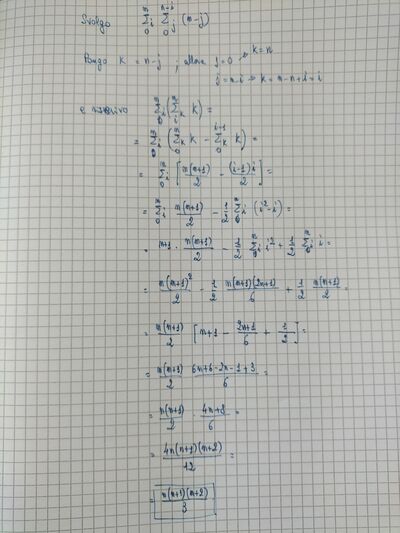 Svolgo Σ_{i=0}^{n} Σ_{j=0}^{n-i} (n-j)
Pongo k = n-j ; allora j=0 → k=n
j=n-i → k=n-n+i=i
e riscrivo Σ_{i=0}^{n} (Σ_{k=i}^{n} k) =
= Σ_{i=0}^{n} (Σ_{k=0}^{n} k - Σ_{k=0}^{i-1} k) =
= Σ_{i=0}^{n} [n(n+1)/2 - (i-1)i/2] =
= Σ_{i=0}^{n} n(n+1)/2 - 1/2 Σ_{i=0}^{n} (i²-i) =
= n+1 · n(n+1)/2 - 1/2 Σ_{i=0}^{n} i² + 1/2 Σ_{i=0}^{n} i =
= n(n+1)²/2 - 1/2 n(n+1)(2n+1)/6 + 1/2 n(n+1)/2 =
= n(n+1)/2 [n+1 - (2n+1)/6 + 1/2] =
= n(n+1)/2 (6n+6-2n-1+3)/6 =
= n(n+1)/2 · (4n+8)/6 =
= 4n(n+1)(n+2)/12 =
= n(n+1)(n+2)/3